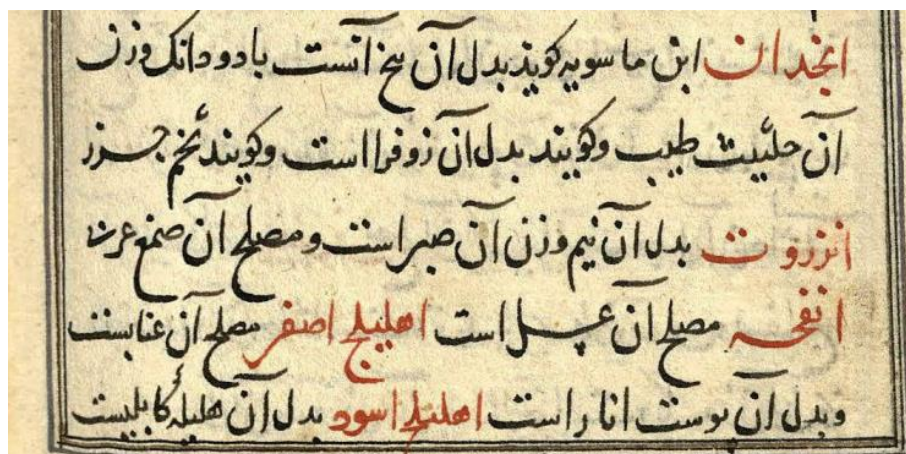 انجدان ابن ماسویه کویند بدل آن بیخ آنست با دو دانک وزن
آن حلتیت طیب و کویند بدل آن زوفرا است و کویند تخم جزر
انزروت بدل آن نیم وزن آن صبر است و مصلح آن صمغ عربی
انفحه مصلح آن عسل است اهلیلج اصفر مصلح آن عنابست
و بدل آن پوست انار است اهلیلج اسود بدل آن هلیلهٔ کابلیست